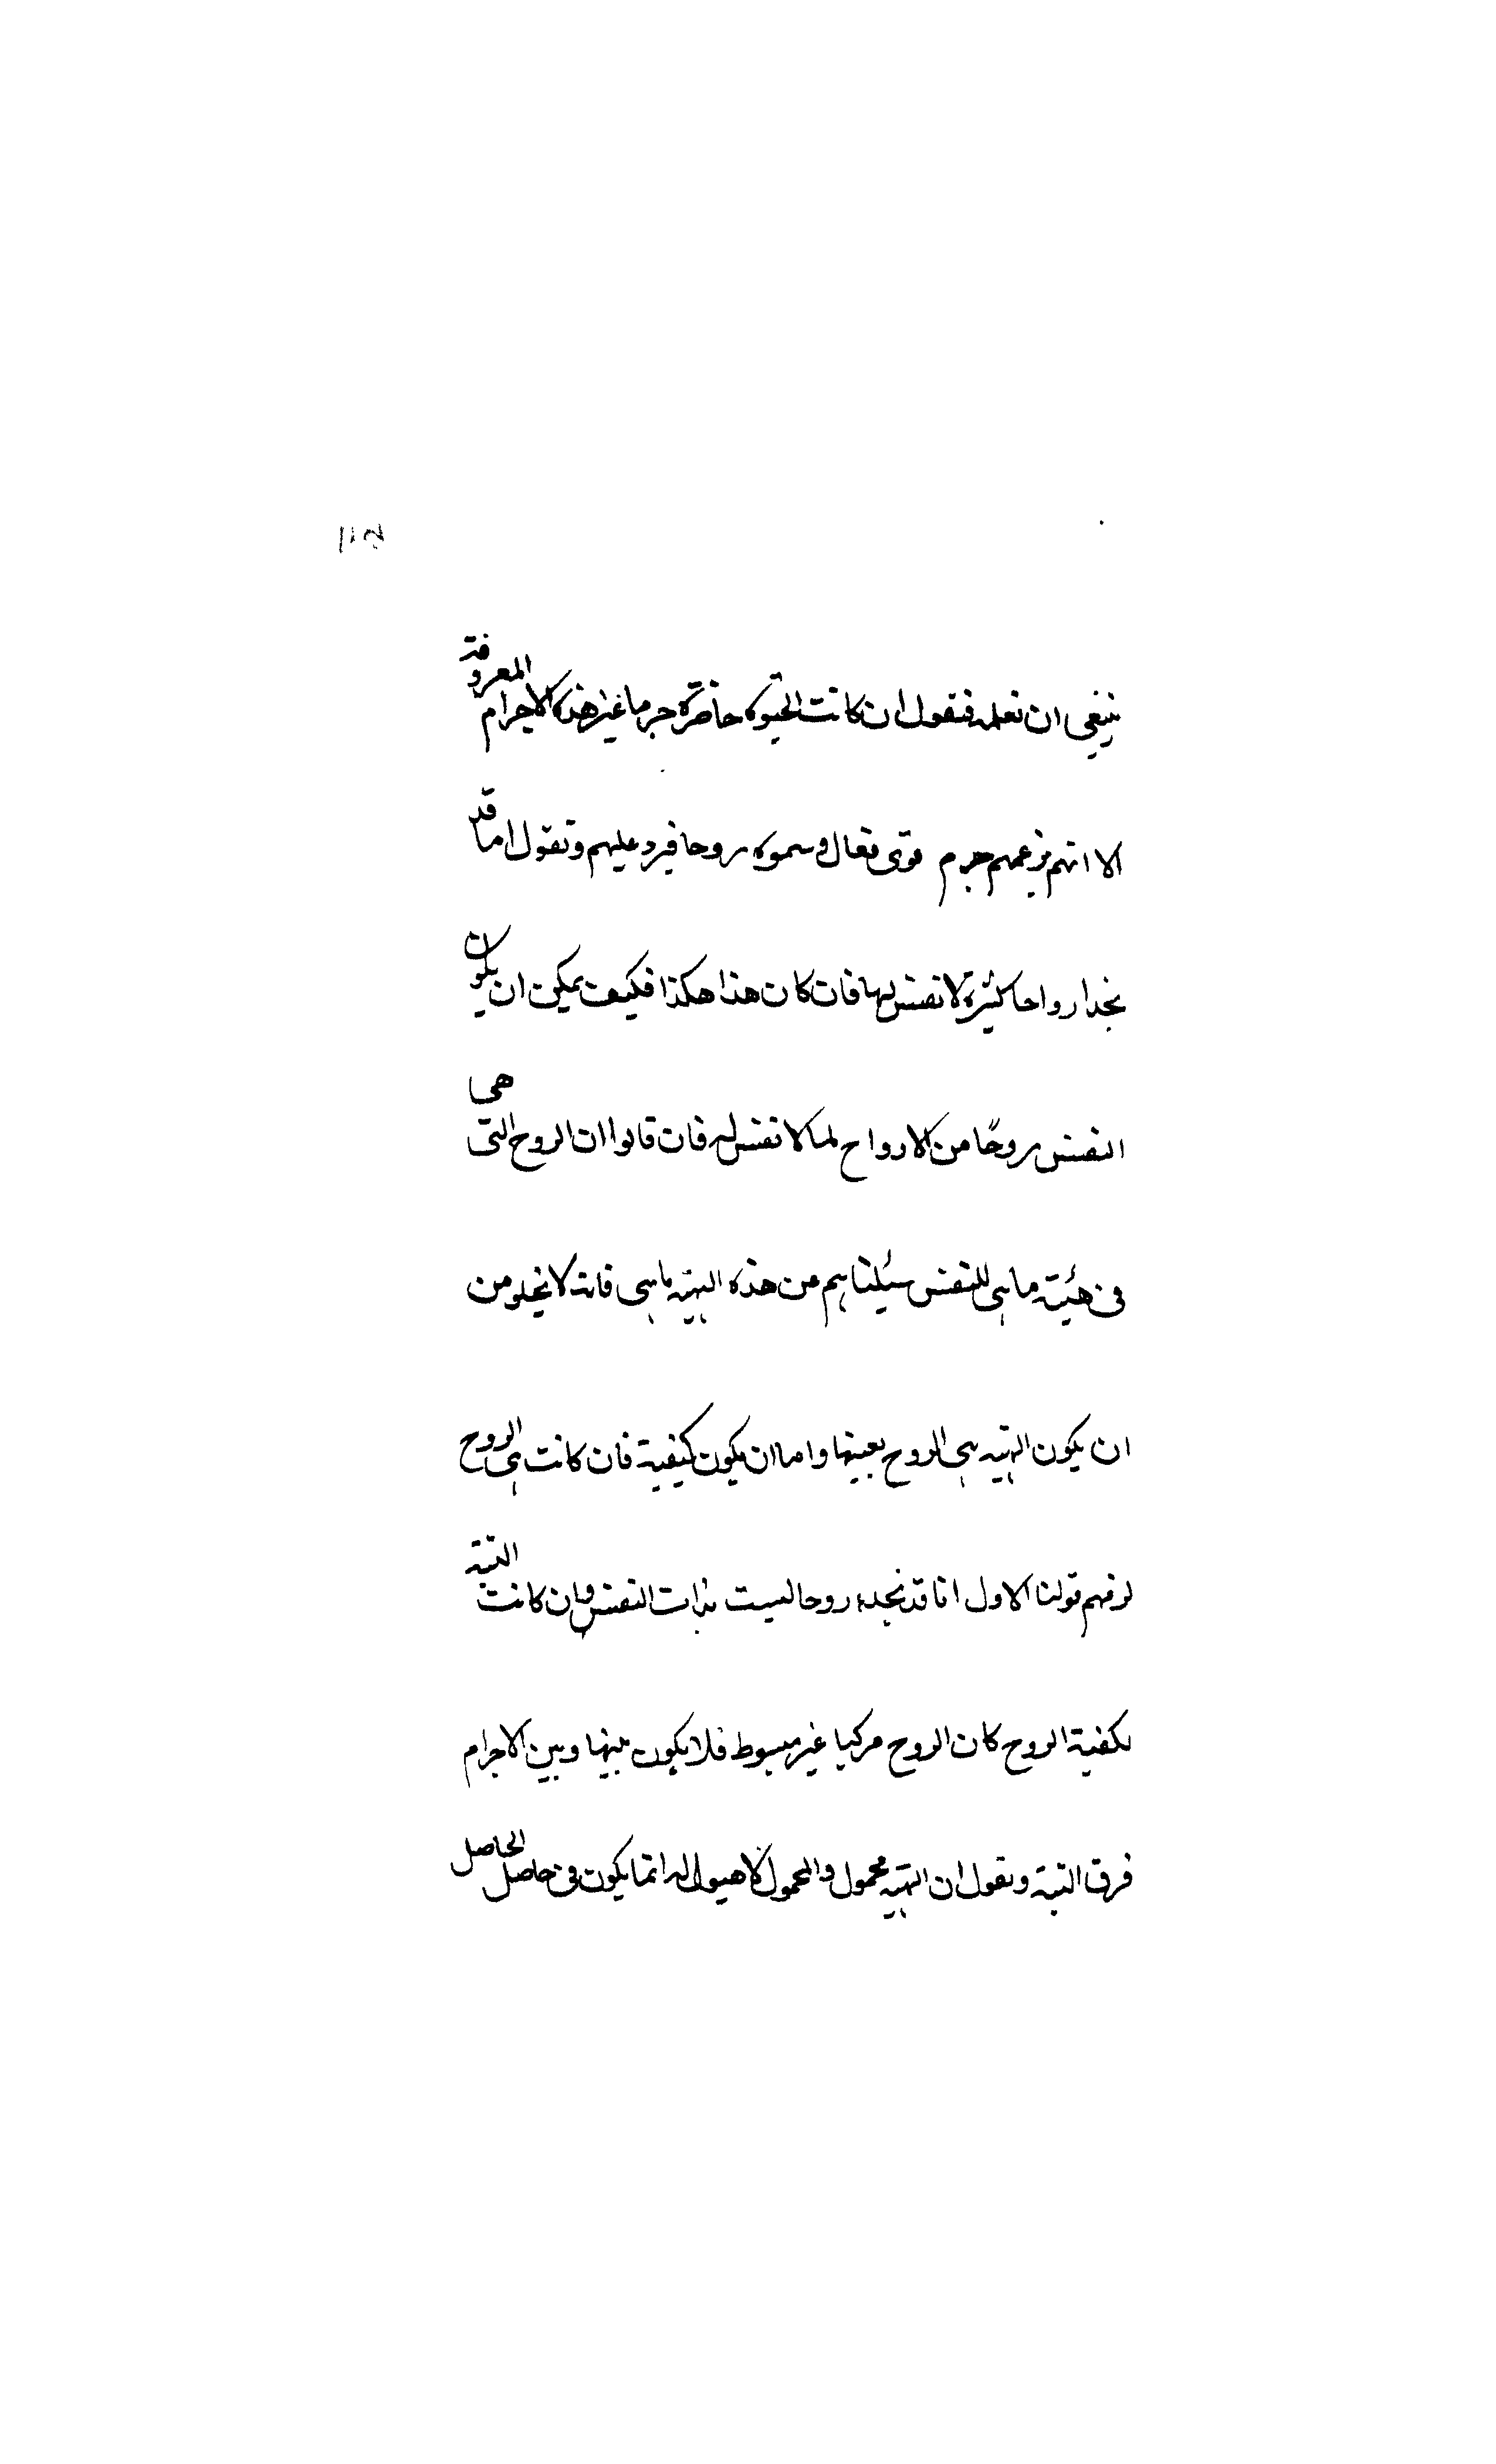 ينبغي ان نعلمه فنقول ان كانت الحيوة حاضرة جرما غير هذه الاجرام المعروفة
الا انهم بزعمهم جرم قوى فعال وسموه روحا فيرد عليهم ونقول اما قد
نجد ارواحا كثيرة لا نفس لها فان كان هذا هكذا فكيف يمكن ان يكون
النفس روحًا من الارواح لما لا نفس له فان قالوا ان الروح التى هى
فى هيئة ما هى للنفس سئلناهم عن هذه الهيئة ما هى فانه لا يخلو من
ان يكون الهيئة هى الروح بعينها واما ان يكون كيفية فان كانت هى الروح
لزمهم قولنا الاول انا قد نجد روحا ليست بذات النفس وان كانت الهيئة
لكيفية الروح كان الروح مركبا غير مبسوط فلا يكون بينها وبين الاجرام
فرق البتة ونقول ان الهيئة محمول والمحمول لا هيولى له انما يكون فى حاصل الحاصل